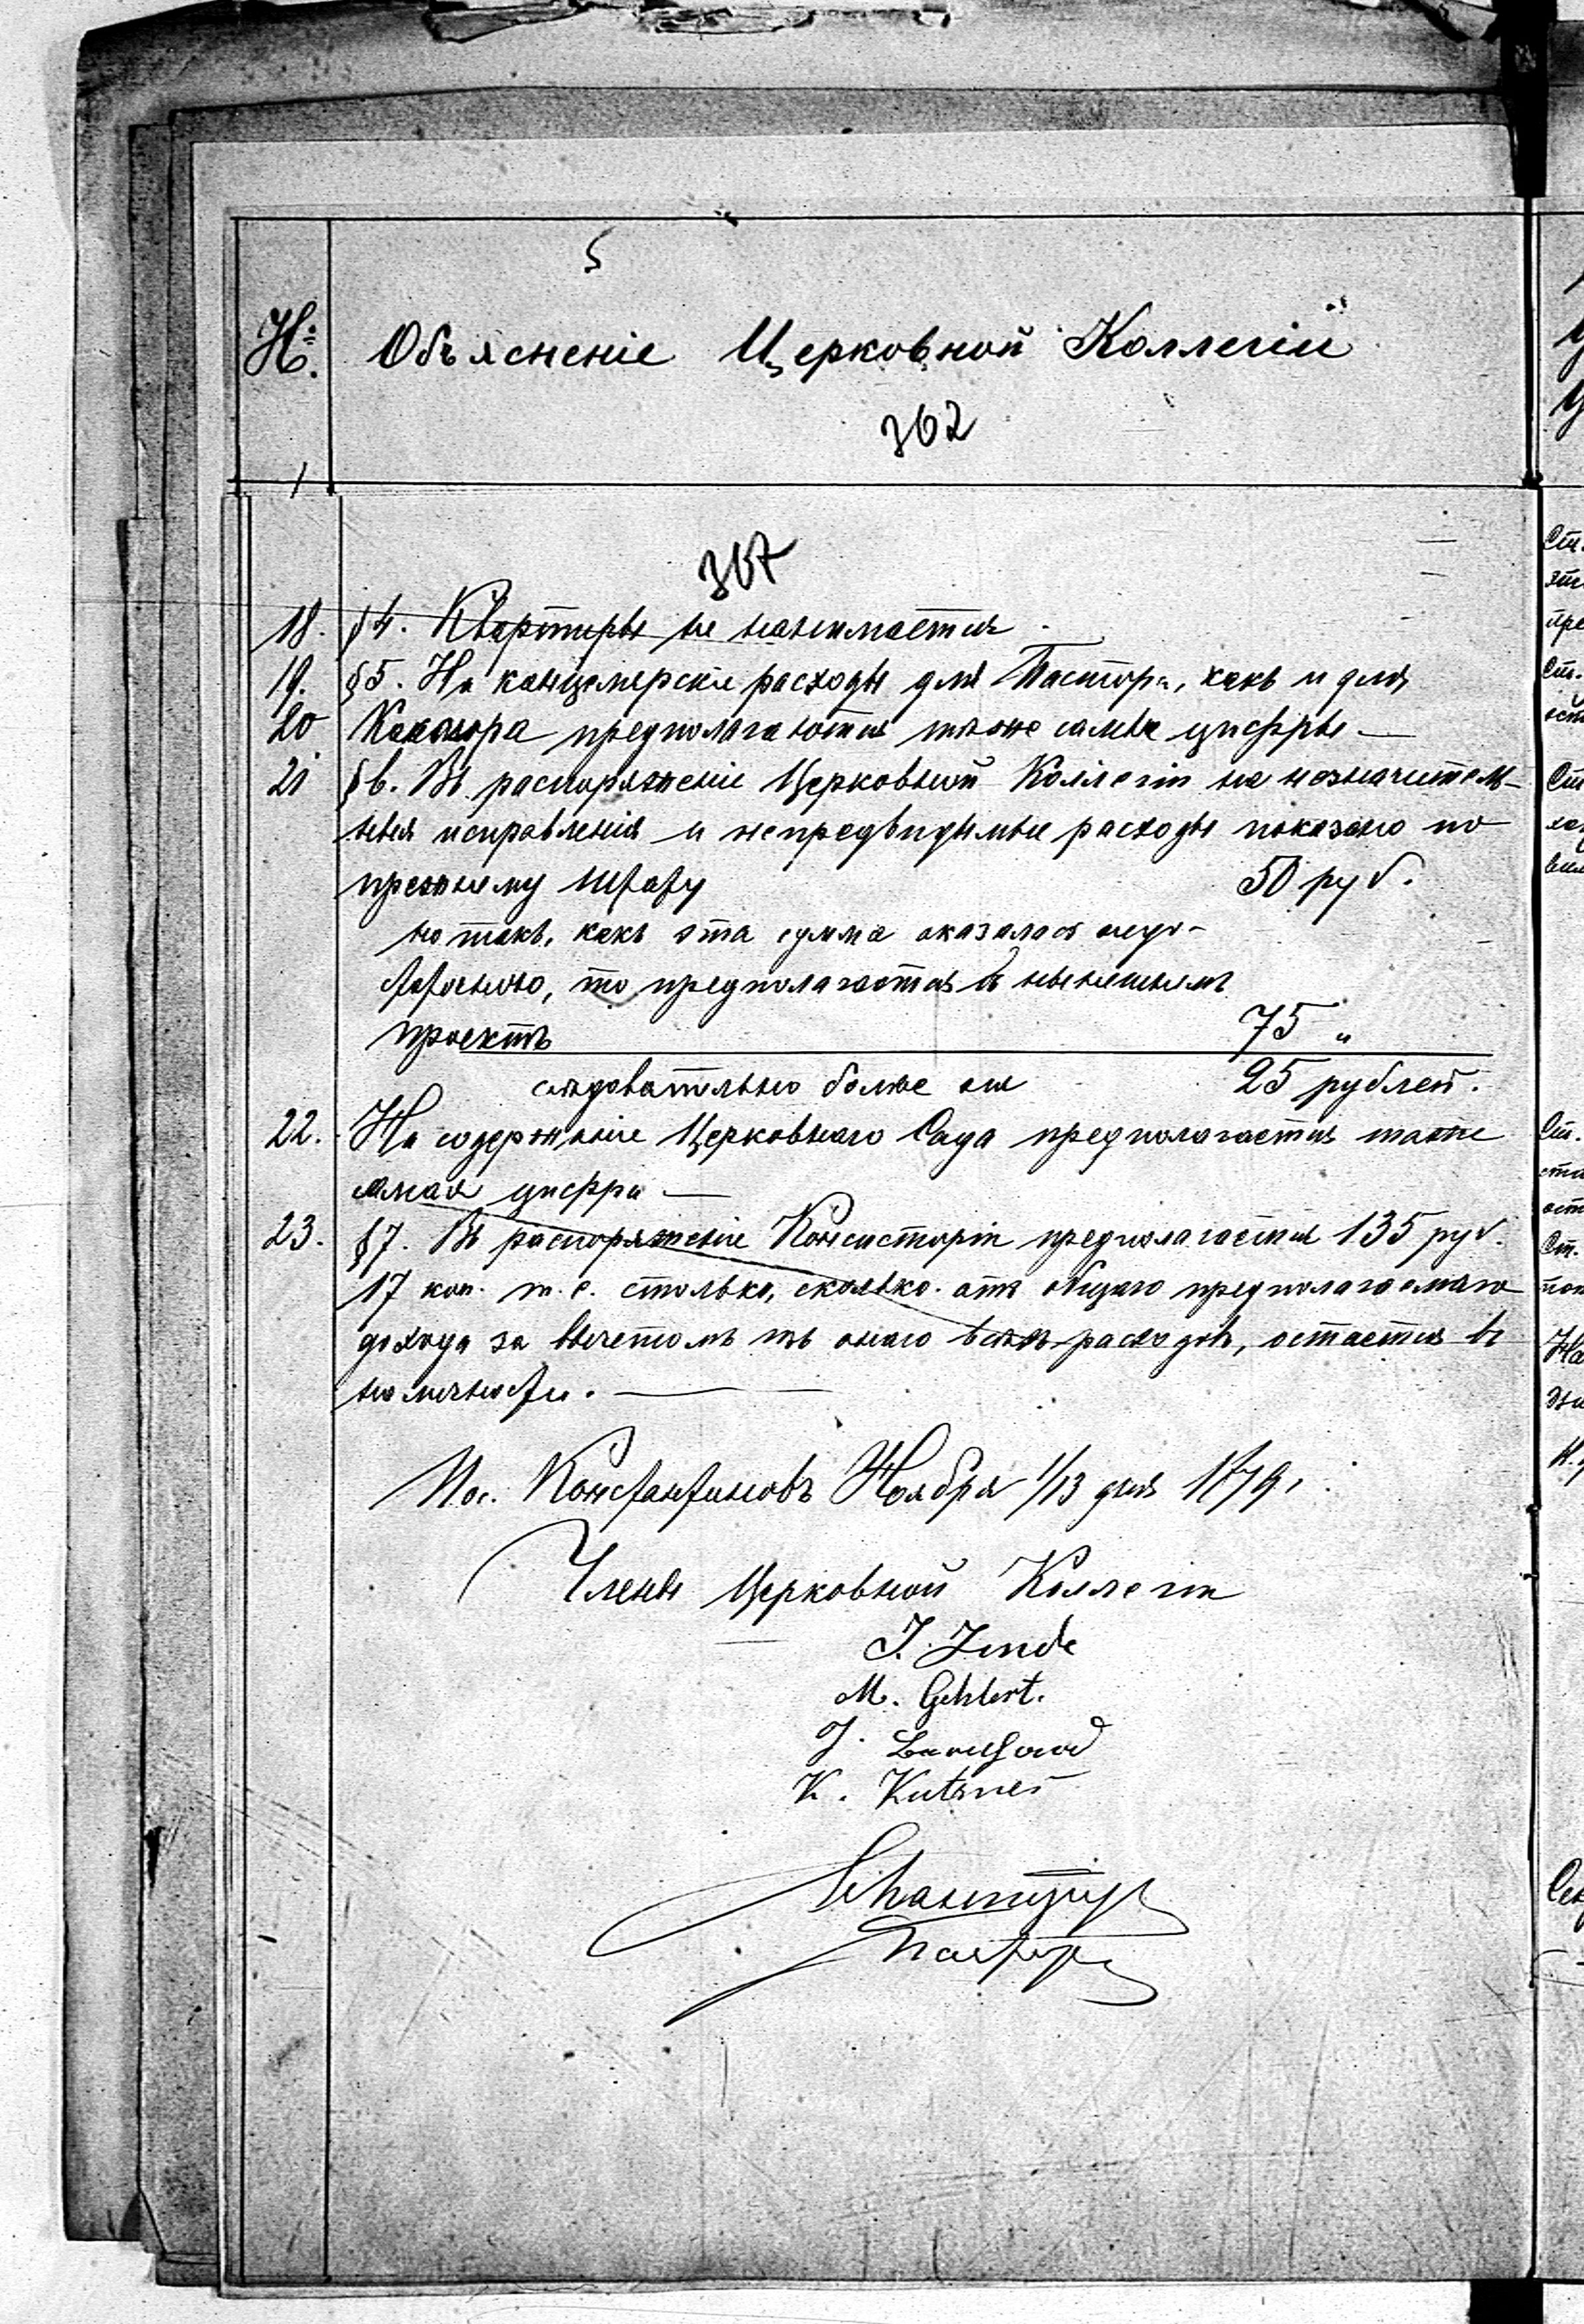 5
№. Объясненіе Церковной Коллегіи
362
1
367
18. §4. Квартиры не нанимается.
19. §5. На канцелярскіе расходы для Пастора, какъ и для
20 Кантора предполагаются тѣ же самыя цифры —
21 §6. Въ распоряженіе Церковной Коллегіи на незначитель-
ныя исправленія и непредвидимые расходы показано по
прежнему штату 50 руб.
но такъ, какъ эта сумма оказалась недо-
статочною, то предполагается въ нынѣшнемъ
проектѣ 75 "
слѣдовательно болѣе на 25 рублей.
22. На содержаніе Церковнаго Сада предполагается таже
самая цифра —
23. §7. Въ распоряженіе Консисторіи предполагается 135 руб.
17 коп. т. е. столько, сколько отъ общаго предполагаемаго
дохода за вычетомъ изъ онаго всѣхъ расходовъ, остается въ
наличности. —
Пос. Константиновъ Ноября 1/13 дня 1879.
Члены Церковной Коллегіи
J. Linde
M. Gehlert.
J.
K. Kutzner
Пасторъ
Ст.
Ст.
Ст.
Ст.
На